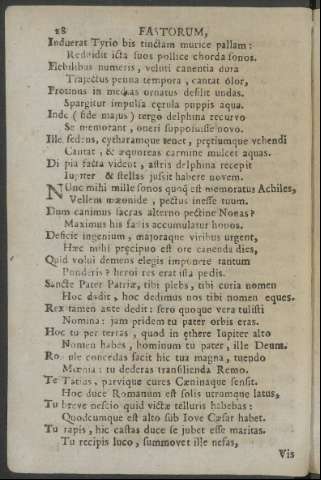 28 FASTORUM,
Induerat Tyrio bis tinctam murice pallam:
Reddidit icta suos pollice chorda sonos.
Flebilibus numeris, veluti canentia dura
Trajectus penna tempora, cantat olor,
Protinus in medias ornatus desilit undas.
Spargitur impulsa cęrula puppis aqua.
Inde (fide majus) tergo delphina recurvo
Se memorant, oneri supposuisse novo.
Ille sedens, cytharamque tenet, pretiumque vehendi
Cantat, & æquoreas carmine mulcet aquas.
Di pia facta vident, astris delphina recepit
Iupiter & stellas jussit habere novem.
NUnc mihi mille sonos quoq; est memoratus Achilles,
Vellem mæonide, pectus inesse tuum.
Dum canimus sacras alterno pectine Nonas?
Maximus his fastis accumulatur honos.
Deficit ingenium, majoraque viribus urgent,
Hæc mihi pręcipuo est ore canenda dies,
Quid volui demens elegis imponere tantum
Ponderis? heroi res erat ista pedis.
Sancte Pater Patriæ, tibi plebs, tibi curia nomen
Hoc dedit, hoc dedimus nos tibi nomen eques.
Res tamen ante dedit: sero quoque vera tulisti
Nomina: jam pridem tu pater orbis eras.
Hoc tu per terras, quod in ęthere Iupiter alto
Nomen habes, hominum tu pater, ille Deum.
Romule concedas facit hic tua magna, tuendo
Mœnia: tu dederas transilienda Remo.
Te Tatius, parvique cures Cæninaque sensit.
Hoc duce Romanum est solis utrumque latus,
Tu breve nescio quid victæ telluris habebas:
Quodcumque est alto sub Iove Cæsar habet.
Tu rapis, hic castas duce se jubet esse maritas.
Tu recipis luco, summovet ille nefas,
Vis